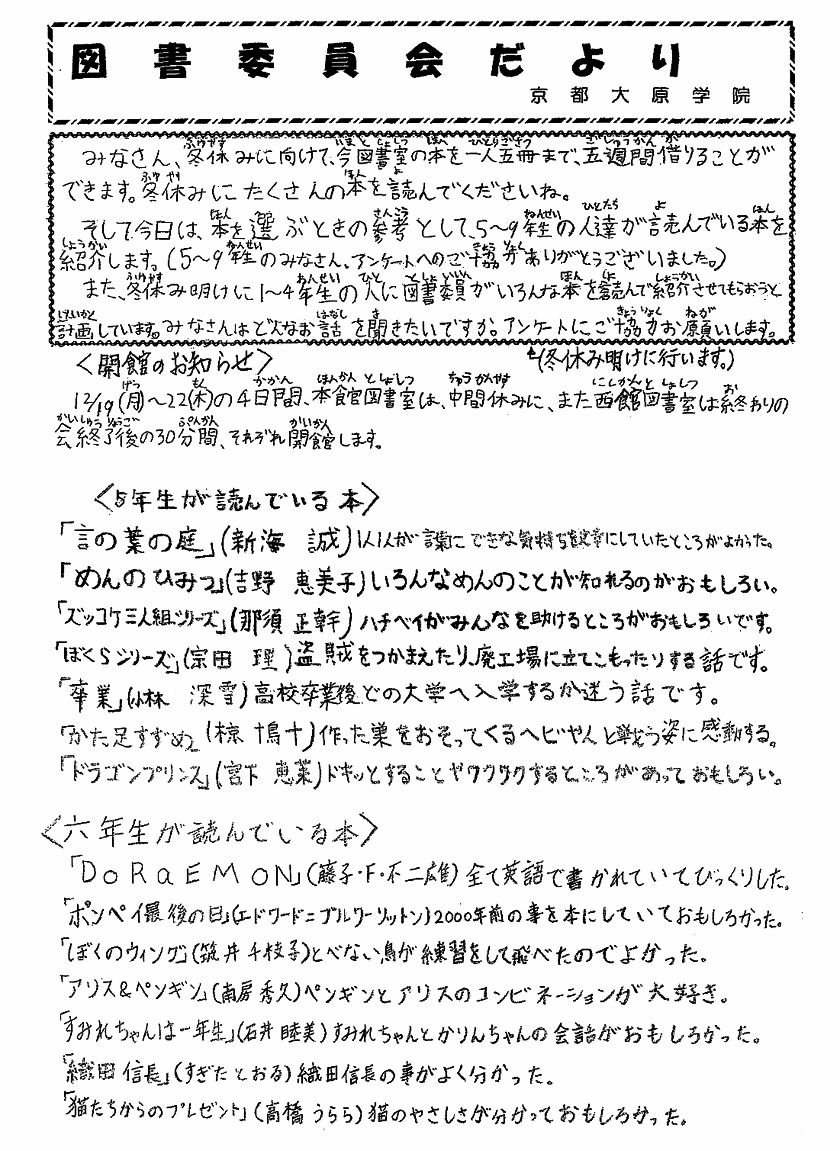 図書委員会だより
京都大原学院
みなさん、冬休みに向けて、今図書室の本を一人五冊まで、五週間借りることが
できます。冬休みにたくさんの本を読んでくださいね。
そして今日は、本を選ぶときの参考として、5〜9年生の人達が読んでいる本を
紹介します。(5〜9年生のみなさん、アンケートへのご協力ありがとうございました。)
また、冬休み明けに1〜4年生の人に図書委員がいろんな本を読んで紹介させてもらおうと
計画しています。みなさんはどんなお話を聞きたいですか。アンケートにご協力お願いします。
(冬休み明けに行います。)
〈開館のお知らせ〉
12/19(月)〜22(木)の4日間、本館図書室は、中間休みに、また西館図書室は終わりの
会終了後の30分間、それぞれ開館します。
〈5年生が読んでいる本〉
「言の葉の庭」(新海 誠)1人1人が言葉にできな気持ちを文章にしていたところがよかった。
「めんのひみつ」(吉野 恵美子)いろんなめんのことが知れるのがおもしろい。
「ズッコケ三人組シリーズ」(那須 正幹)ハチベイがみんなを助けるところがおもしろいです。
「ぼくらシリーズ」(宗田 理)盗賊をつかまえたり、廃工場に立てこもったりする話です。
「卒業」(小林 深雪)高校卒業後どの大学へ入学するか迷う話です。
「かた足すずめ」(椋 鳩十)作った巣をおそってくるヘビやんと戦う姿に感動する。
「ドラゴンプリンス」(宮下 恵茉)ドキッとすることやワクワクするところがあっておもしろい。
〈六年生が読んでいる本〉
「DoRaEMoN」(藤子・F・不二雄)全て英語で書かれていてびっくりした。
「ポンペイ最後の日」(エドワード=ブルワーリットン)2000年前の事を本にしていておもしろかった。
「ぼくのウィング」(筑井千枝子)とべない鳥が練習をして飛べたのでよかった。
「アリス&ペンギン」(南房秀久)ペンギンとアリスのコンビネーションが大好き。
「すみれちゃんは一年生」(石井睦美)すみれちゃんとかりんちゃんの会話がおもしろかった。
「織田信長」(すぎたとおる)織田信長の事がよく分かった。
「猫たちからのプレゼント」(高橋うらら)猫のやさしさが分かっておもしろかった。